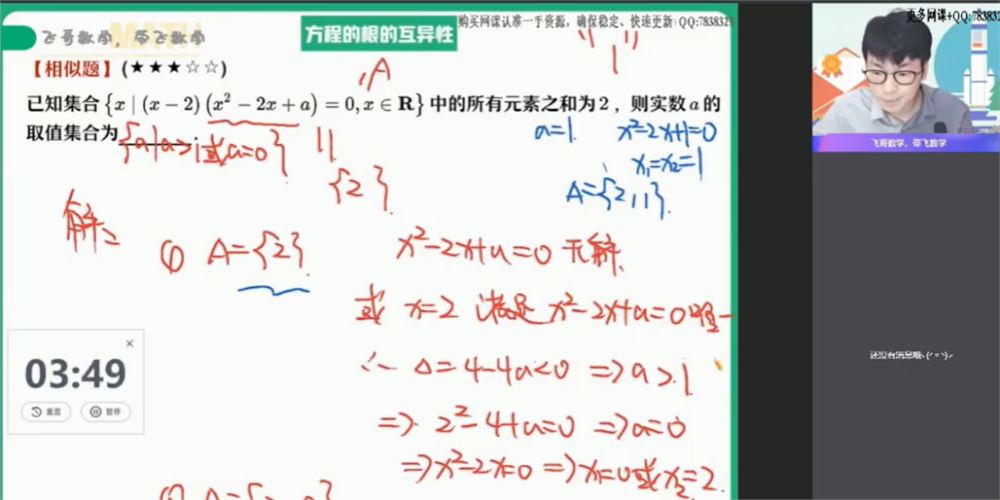 飞哥数学,带飞数学
方程的根的互异性
购买网课认准一手资源,确保完整、快速更新+QQ:7838325
更多网课+QQ:78383
【相似题】(★★★☆☆)
"A
已知集合{x | (x−2)(x²−2x+a)=0,x∈R}中的所有元素之和为2,则实数a的
取值集合为{a|a>1或a=0}.
{2}.
a=1. x²-2x+1=0
x₁=x₂=1
A={2,1}.
解:
① A={2}.
x²-2x+a=0 无解.
或 x=2 满足 x²-2x+a=0
∴ Δ=4-4a<0 ⇒ a>1
⇒ 2²-4+a=0 ⇒ a=0
⇒ x²-2x=0 ⇒ x₁=0或x₂=2.
03:49
重置
暂停
飞哥数学、带飞数学
还没有消息哦~